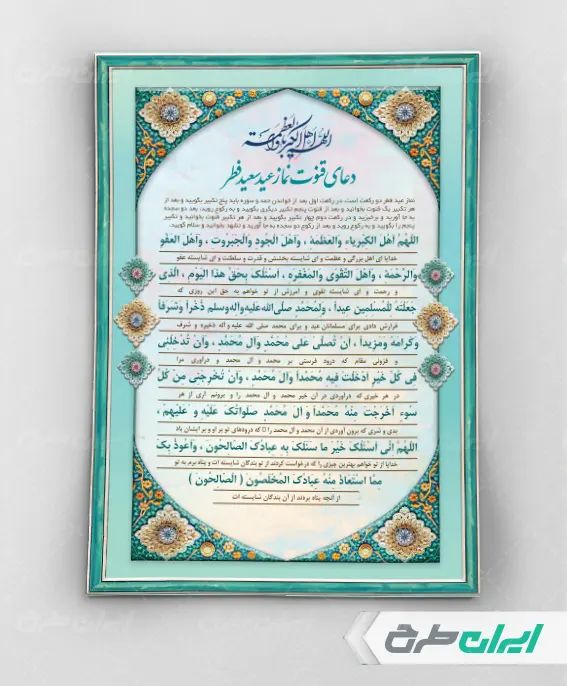 اللهم اهل الکبریاء والعظمة
دعای قنوت نماز عید سعید فطر
نماز عید فطر دو رکعت است، در رکعت اول بعد از خواندن حمد و سوره باید پنج تکبیر بگویید و بعد از
هر تکبیر یک قنوت بخوانید و بعد از قنوت پنجم تکبیر دیگری بگویید و به رکوع روید، بعد دو سجده
به جا آورید و برخیزید و در رکعت دوم چهار تکبیر بگویید و بعد از هر تکبیر قنوت بخوانید و تکبیر
پنجم را بگویید و به رکوع روید و بعد از رکوع دو سجده به جا آورید و تشهد بخوانید و سلام گویید.
اَللّهُمَّ اَهْلَ الْکِبْرِیاءِ وَالْعَظَمَةِ ، وَاَهْلَ الْجُودِ وَالْجَبَرُوتِ ، وَاَهْلَ الْعَفْوِ
خدایا ای اهل بزرگی و عظمت و ای شایسته بخشش و قدرت و سلطنت و ای شایسته عفو
وَالرَّحْمَةِ ، وَاَهْلَ التَّقْوی وَالْمَغْفِرَةِ ، اَسْئَلُکَ بِحَقِّ هذَا الْیَوْمِ ، اَلَّذی
و رحمت و ای شایسته تقوی و آمرزش از تو خواهم به حق این روزی که
جَعَلْتَهُ لِلْمُسْلِمینَ عیداً ، وَلِمُحَمَّدٍ صلی الله علیه واله وسلم ذُخْراً وَشَرَفاً
قرارش دادی برای مسلمانان عید و برای محمد صلی الله علیه و آله ذخیره و شرف
وَکَرامَةً وَمَزیداً ، اَنْ تُصَلِّیَ عَلی مُحَمَّدٍ وَآلِ مُحَمَّدٍ ، وَاَنْ تُدْخِلَنی
و فزونی مقام که درود فرستی بر محمد و آل محمد و درآوری مرا
فی کُلِّ خَیْرٍ اَدْخَلْتَ فیهِ مُحَمَّداً وَآلَ مُحَمَّدٍ ، وَاَنْ تُخْرِجَنی مِنْ کُلِّ
در هر خیری که درآوردی در آن خیر محمد و آل محمد را و برونم آری از هر
سُوءٍ اَخْرَجْتَ مِنْهُ مُحَمَّداً وَ آلَ مُحَمَّدٍ صَلَواتُکَ عَلَیْهِ وَ عَلَیْهِمْ ،
بدی و شری که برون آوردی از آن محمد و آل محمد را که درودهای تو بر او و بر ایشان باد
اَللّهُمَّ اِنّی اَسْئَلُکَ خَیْرَ ما سَئَلَکَ بِهِ عِبادُکَ الصّالِحُونَ ، وَاَعُوذُ بِکَ
خدایا از تو خواهم بهترین چیزی را که درخواست کردند از تو بندگان شایسته ات و پناه برم به تو
مِمَّا اسْتَعاذَ مِنْهُ عِبادُکَ الْمُخْلَصُونَ ( الصّالِحُونَ )
از آنچه پناه بردند از آن بندگان شایسته ات
ایران طرح